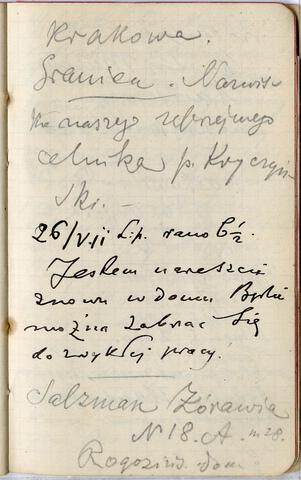 Krakowa.
Granica. Nazwis
ko naszego uprzejmego
celnika p. Kryczyń
ski. —
26/VII Lip. rano 6 1/2.
Jestem nareszcie
znowu w domu Będzie
można zabrać się
do zwykłej pracy.
Salzman Żórawia
N 18. A. m 28.
Rogoziń. dom